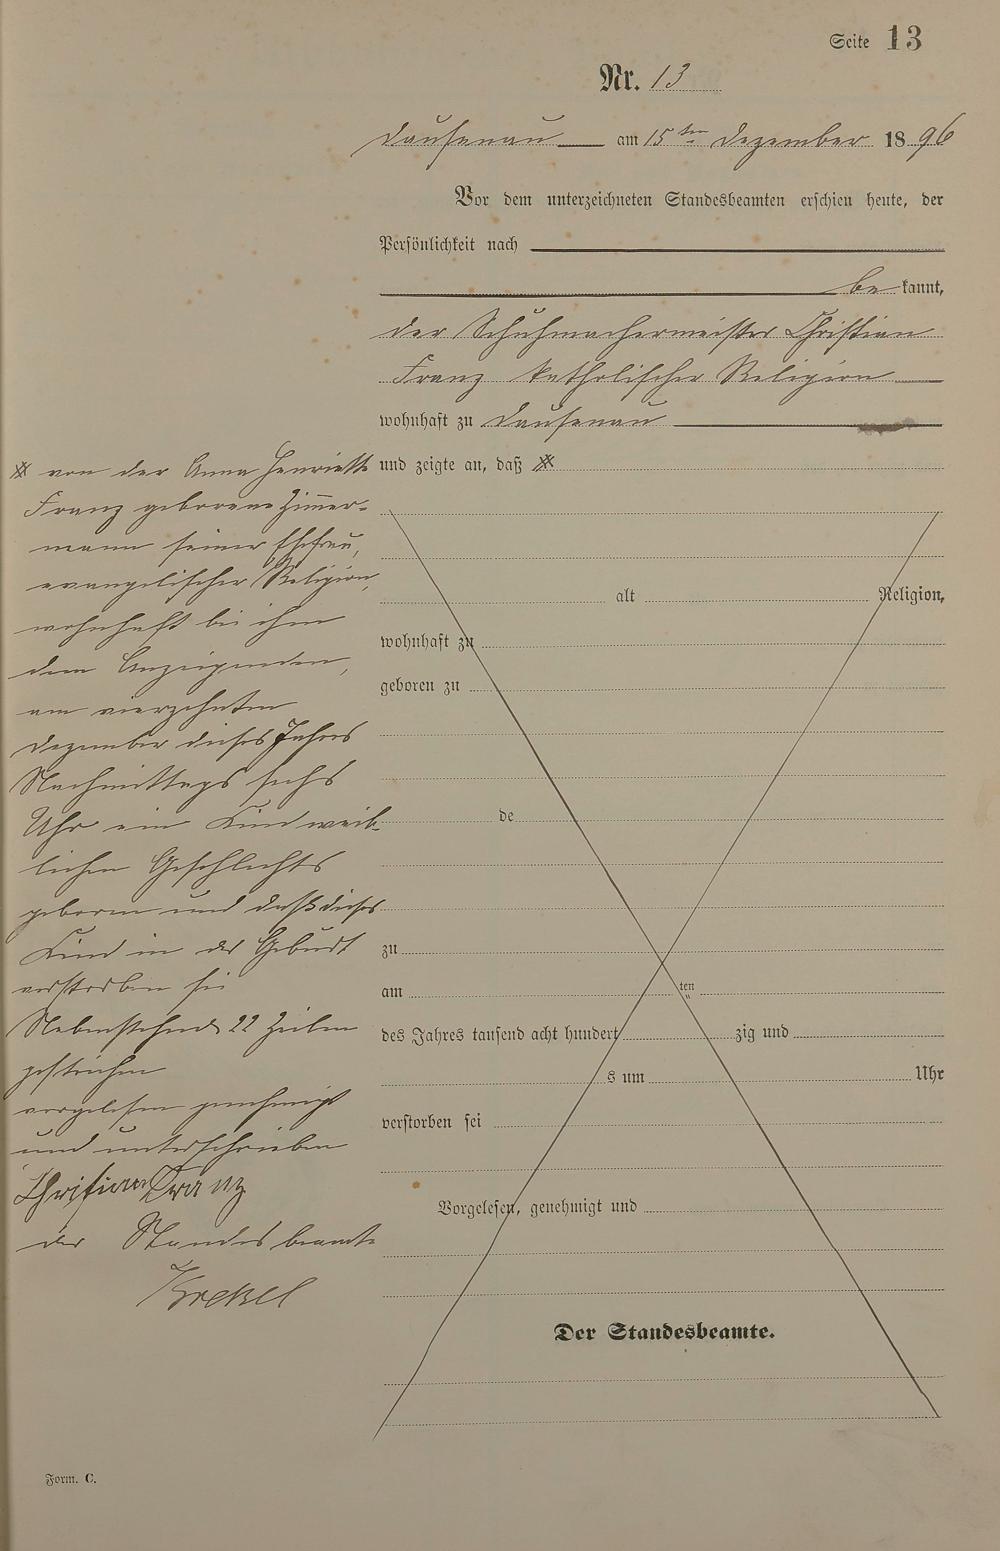 Seite 13
Nr. 13
Dausenau am 15ten Dezember 1896
Vor dem unterzeichneten Standesbeamten erschien heute, der
Persönlichkeit nach
be kannt,
der Schuhmachermeister Christian
Franz katholischer Religion
wohnhaft zu Dausenau
und zeigte an, daß ※
※ von der Anna Henriette
Franz geborene Zimmer-
mann seiner Ehefrau,
evangelischer Religion,
wohnhaft bei ihm
dem Anzeigenden,
am vierzehnten
Dezember dieses Jahres
Nachmittags sechs
Uhr ein Kind weib-
lichen Geschlechts
geboren und daß dieses
Kind in der Geburt
verstorben sei
Nebenstehende 22 Zeilen
gestrichen
vorgelesen genehmigt
und unterschrieben
Christian Franz
der Standesbeamte
Krekel
alt Religion,
wohnhaft zu
geboren zu
de
zu
am ten
des Jahres tausend acht hundert zig und
s um Uhr
verstorben sei
Vorgelesen, genehmigt und
Der Standesbeamte.
Form. C.